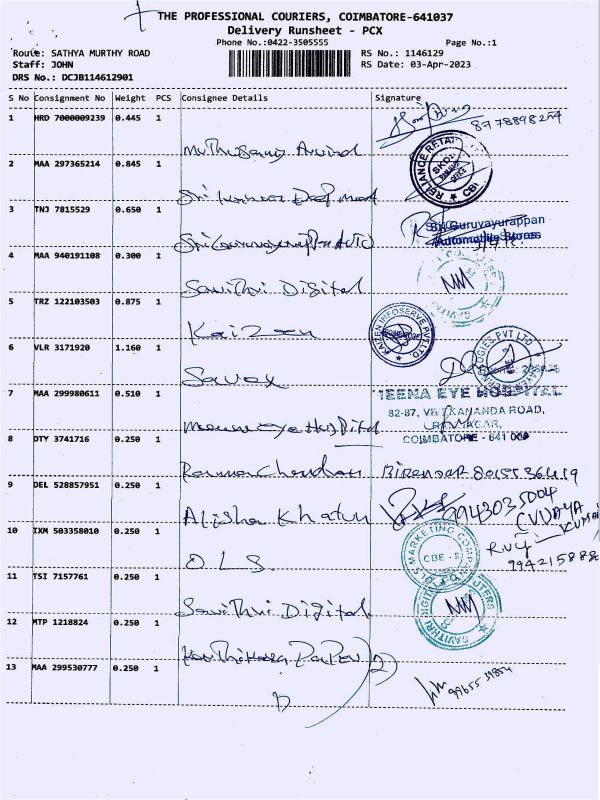 THE PROFESSIONAL COURIERS, COIMBATORE-641037
Delivery Runsheet - PCX
Phone No.:0422-3505555 Page No.:1
Route: SATHYA MURTHY ROAD RS No.: 1146129
Staff: JOHN RS Date: 03-Apr-2023
DRS No.: DCJB114612901
S No Consignment No Weight PCS Consignee Details Signature
1 HRD 7000009239 0.445 1
Muthusamy Arvind
2 MAA 297365214 0.845 1
RELIANCE RETAIL
Sri Kumar
3 TNJ 7815529 0.650 1
Sri Guruvayurappan
Automobile Stores
Sri Guruvayurappa Auto
4 MAA 940191108 0.300 1
Savithri Digital
5 TRZ 122103503 0.875 1
KAIZEN INFOSERVE PVT LTD
Kaizen
6 VLR 3171920 1.160 1
Savex
7 MAA 299980611 0.510 1
TEENA EYE HOSPITAL
82-87, VIVEKANANDA ROAD,
RAMNAGAR,
COIMBATORE - 641 009
eye Hospital
8 DTY 3741716 0.250 1
9 DEL 528857951 0.250 1
9943035004
Alisha Khatun
10 IXM 503358010 0.250 1
OLS MARKETING COMPANY
CBE - 9
O.L.S.
11 TSI 7157761 0.250 1
SAVITHRI DIGITAL COMPUTERS
Savithri Digital
12 MTP 1218824 0.250 1
Karthikeya Paper (2)
13 MAA 299530777 0.250 1